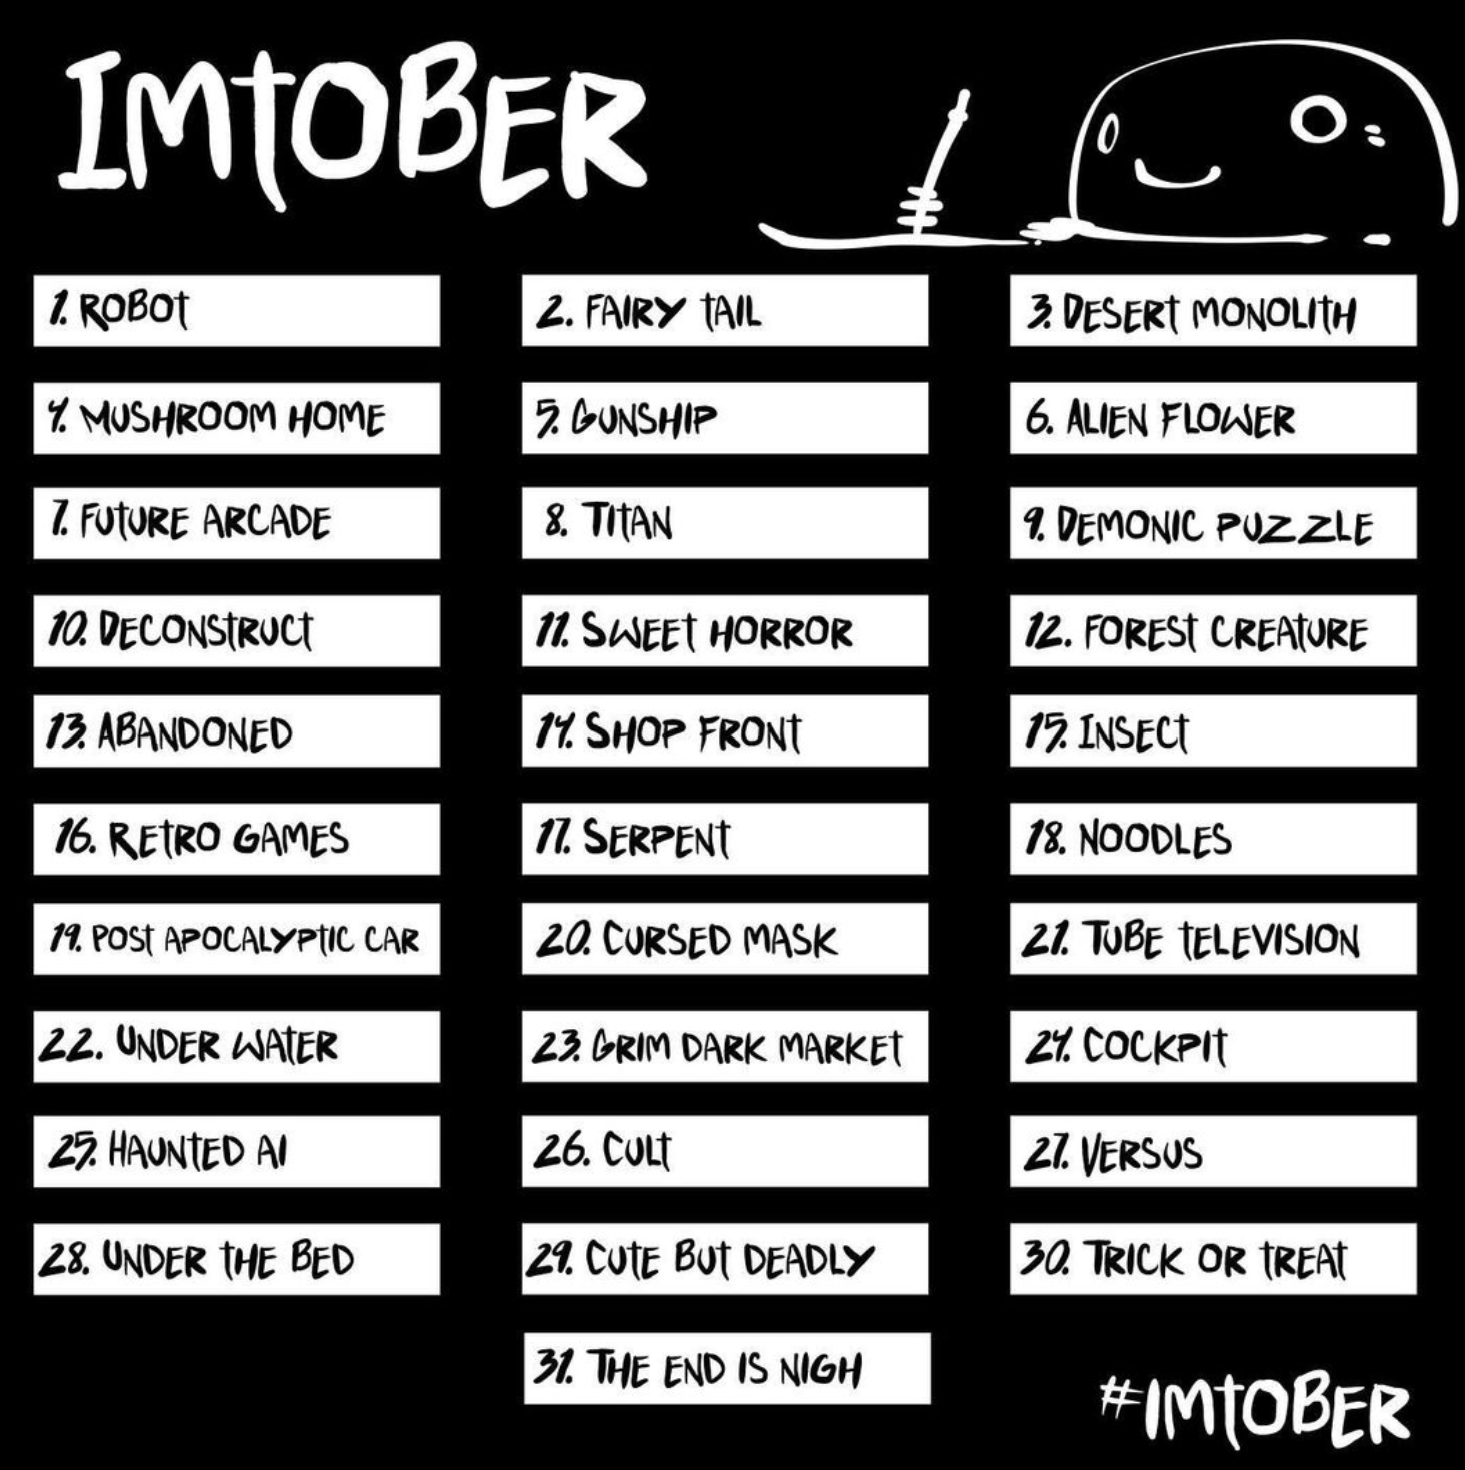 IMTOBER
1. ROBOT
2. FAIRY TAIL
3. DESERT MONOLITH
4. MUSHROOM HOME
5. GUNSHIP
6. ALIEN FLOWER
7. FUTURE ARCADE
8. TITAN
9. DEMONIC PUZZLE
10. DECONSTRUCT
11. SWEET HORROR
12. FOREST CREATURE
13. ABANDONED
14. SHOP FRONT
15. INSECT
16. RETRO GAMES
17. SERPENT
18. NOODLES
19. POST APOCALYPTIC CAR
20. CURSED MASK
21. TUBE TELEVISION
22. UNDER WATER
23. GRIM DARK MARKET
24. COCKPIT
25. HAUNTED AI
26. CULT
27. VERSUS
28. UNDER THE BED
29. CUTE BUT DEADLY
30. TRICK OR TREAT
31. THE END IS NIGH
#IMTOBER